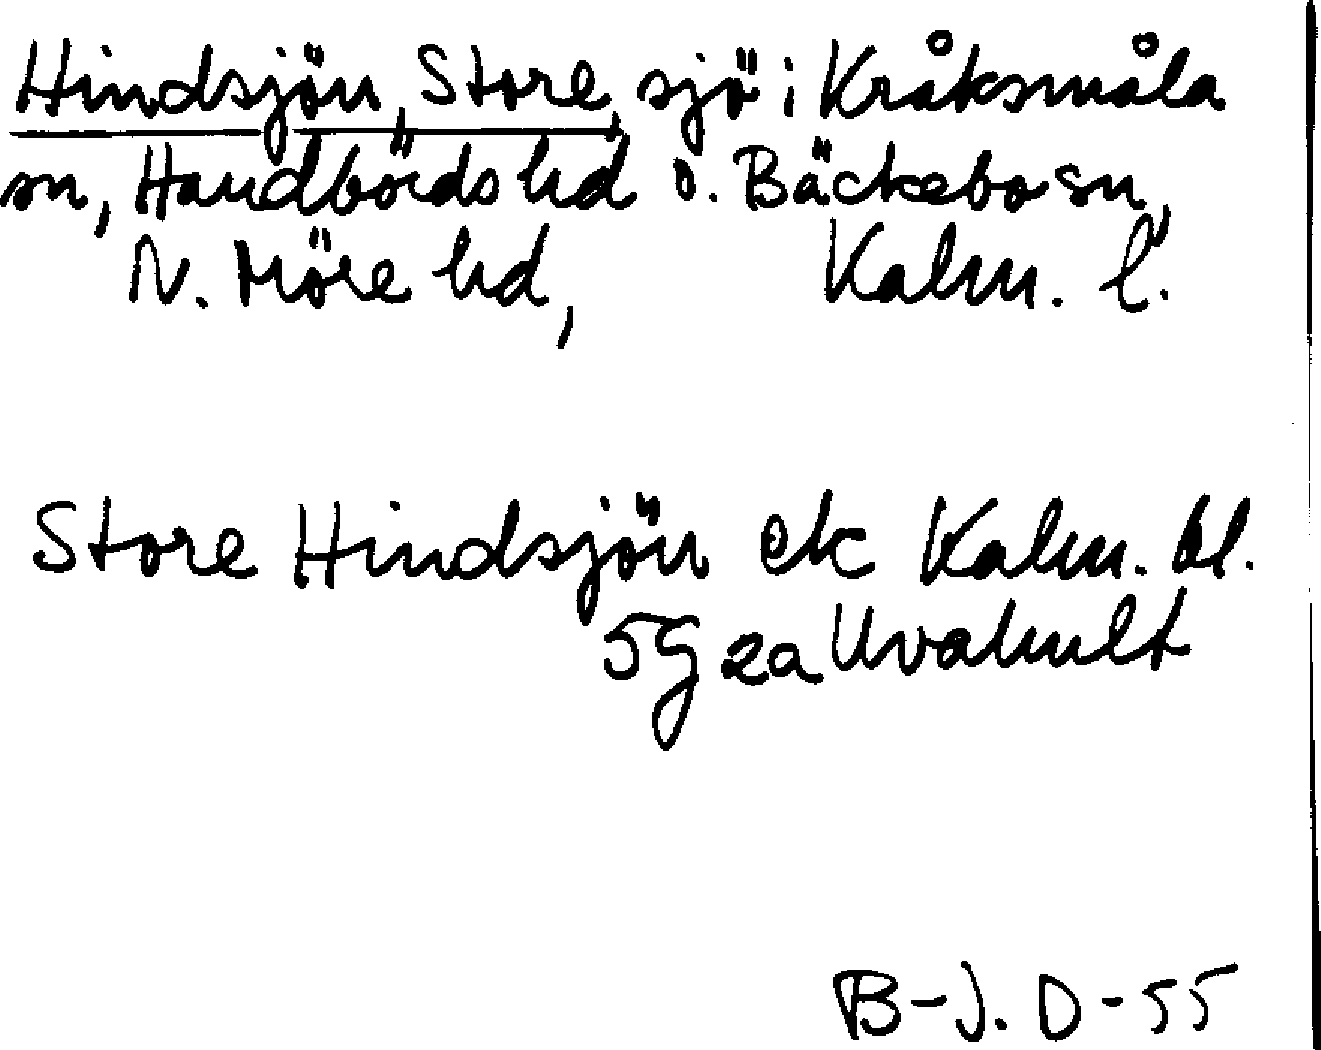 Hindsjön, Store, sjö i Kråksmåla
sn, Handbörds hd o. Bäckebo sn,
N. Möre hd, Kalm. l.
Store Hindsjön ek Kalm. bl.
5G 2a Uvahult
B-J. D-55